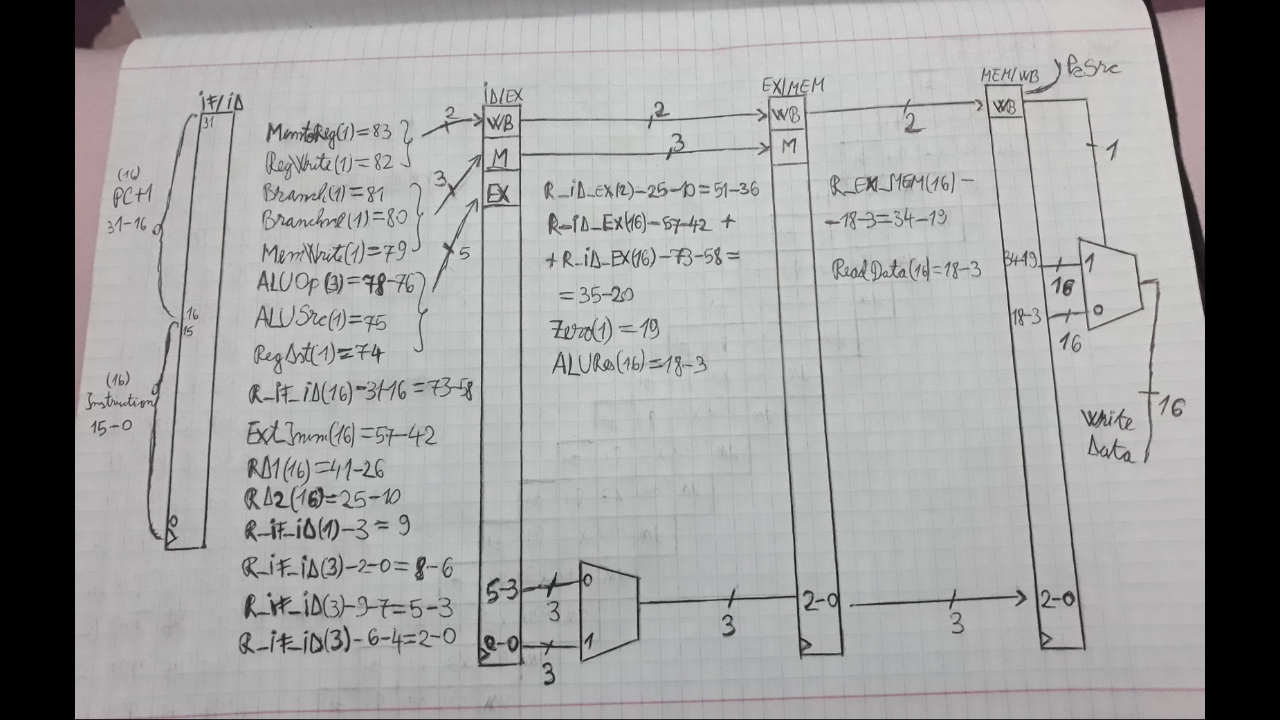 IF/ID
31
(16)
PC+1
31-16
16
15
(16)
Instruction
15-0
0
MemtoReg(1)=83
RegWrite(1)=82
Branch(1)=81
BranchNe(1)=80
MemWrite(1)=79
ALUOp(3)=78-76
ALUSrc(1)=75
RegDst(1)=74
R_iF_iD(16)-31-16=73-58
Ext_Imm(16)=57-42
RD1(16)=41-26
RD2(16)=25-10
R_iF_iD(1)-3=9
R_iF_iD(3)-2-0=8-6
R_iF_iD(3)-9-7=5-3
R_iF_iD(3)-6-4=2-0
2
3
5
ID/EX
WB
M
EX
5-3
2-0
2
3
R_iD_EX(2)-25-10=51-36
R_iD_EX(16)-57-42 +
+R_iD_EX(16)-73-58=
=35-20
Zero(1)=19
ALURes(16)=18-3
3
3
0
1
3
EX/MEM
WB
M
2-0
2
R_EX_MEM(16)-
-18-3=34-19
ReadData(16)=18-3
3
MEM/WB
PcSrc
WB
1
34-19
16
1
18-3
16
0
16
Write
Data
2-0